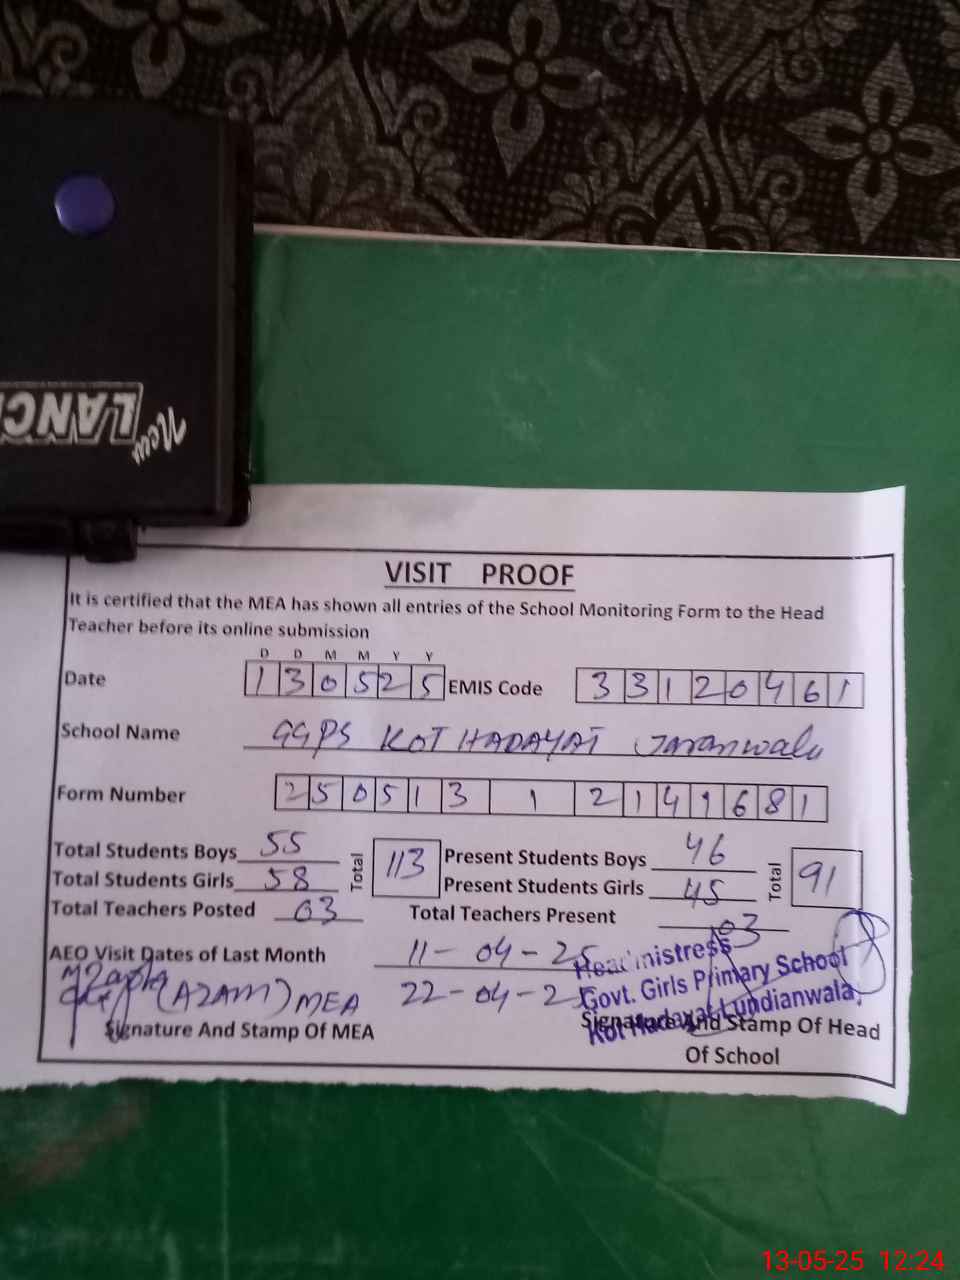 New
LANC
VISIT PROOF
It is certified that the MEA has shown all entries of the School Monitoring Form to the Head
Teacher before its online submission
D D M M Y Y
Date 1 3 0 5 2 5 EMIS Code 3 3 1 2 0 4 6 1
School Name GGPS KOT HADAYAT Jaranwala
Form Number 2 5 0 5 1 3 1 2 1 4 1 6 8 1
Total Students Boys 55 Total 113 Present Students Boys 46 Total 91
Total Students Girls 58 Present Students Girls 45
Total Teachers Posted 03 Total Teachers Present 03
AEO Visit Dates of Last Month 11-04-25
22-04-25
(AZAM) MEA
Headmistress
Govt. Girls Primary School
Kot Hadayat Lundianwala,
Signature And Stamp Of MEA Signature And Stamp Of Head
Of School
13-05-25 12:24